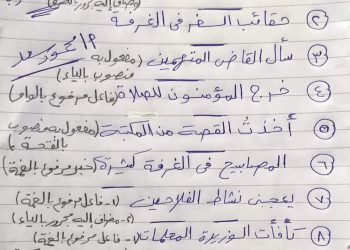 ② حقائب السفر فى الغرفة
③ سأل القاضى المتهمين (مفعول به منصوب بالياء)
④ خرج المؤمنون للصلاة (فاعل مرفوع بالواو)
⑤ أخذت القصة من المكتبة (مفعول به منصوب بالفتحة)
⑥ المصابيح فى الغرفة كثيرة (خبر مرفوع بالضمة)
⑦ يعجبنى نشاط الفلاحين (١- فاعل مرفوع بالضمة
٢- مضاف إليه مجرور بالياء)
⑧ كافأت الوزيرة المعلمات (١- فاعل مرفوع بالضمة